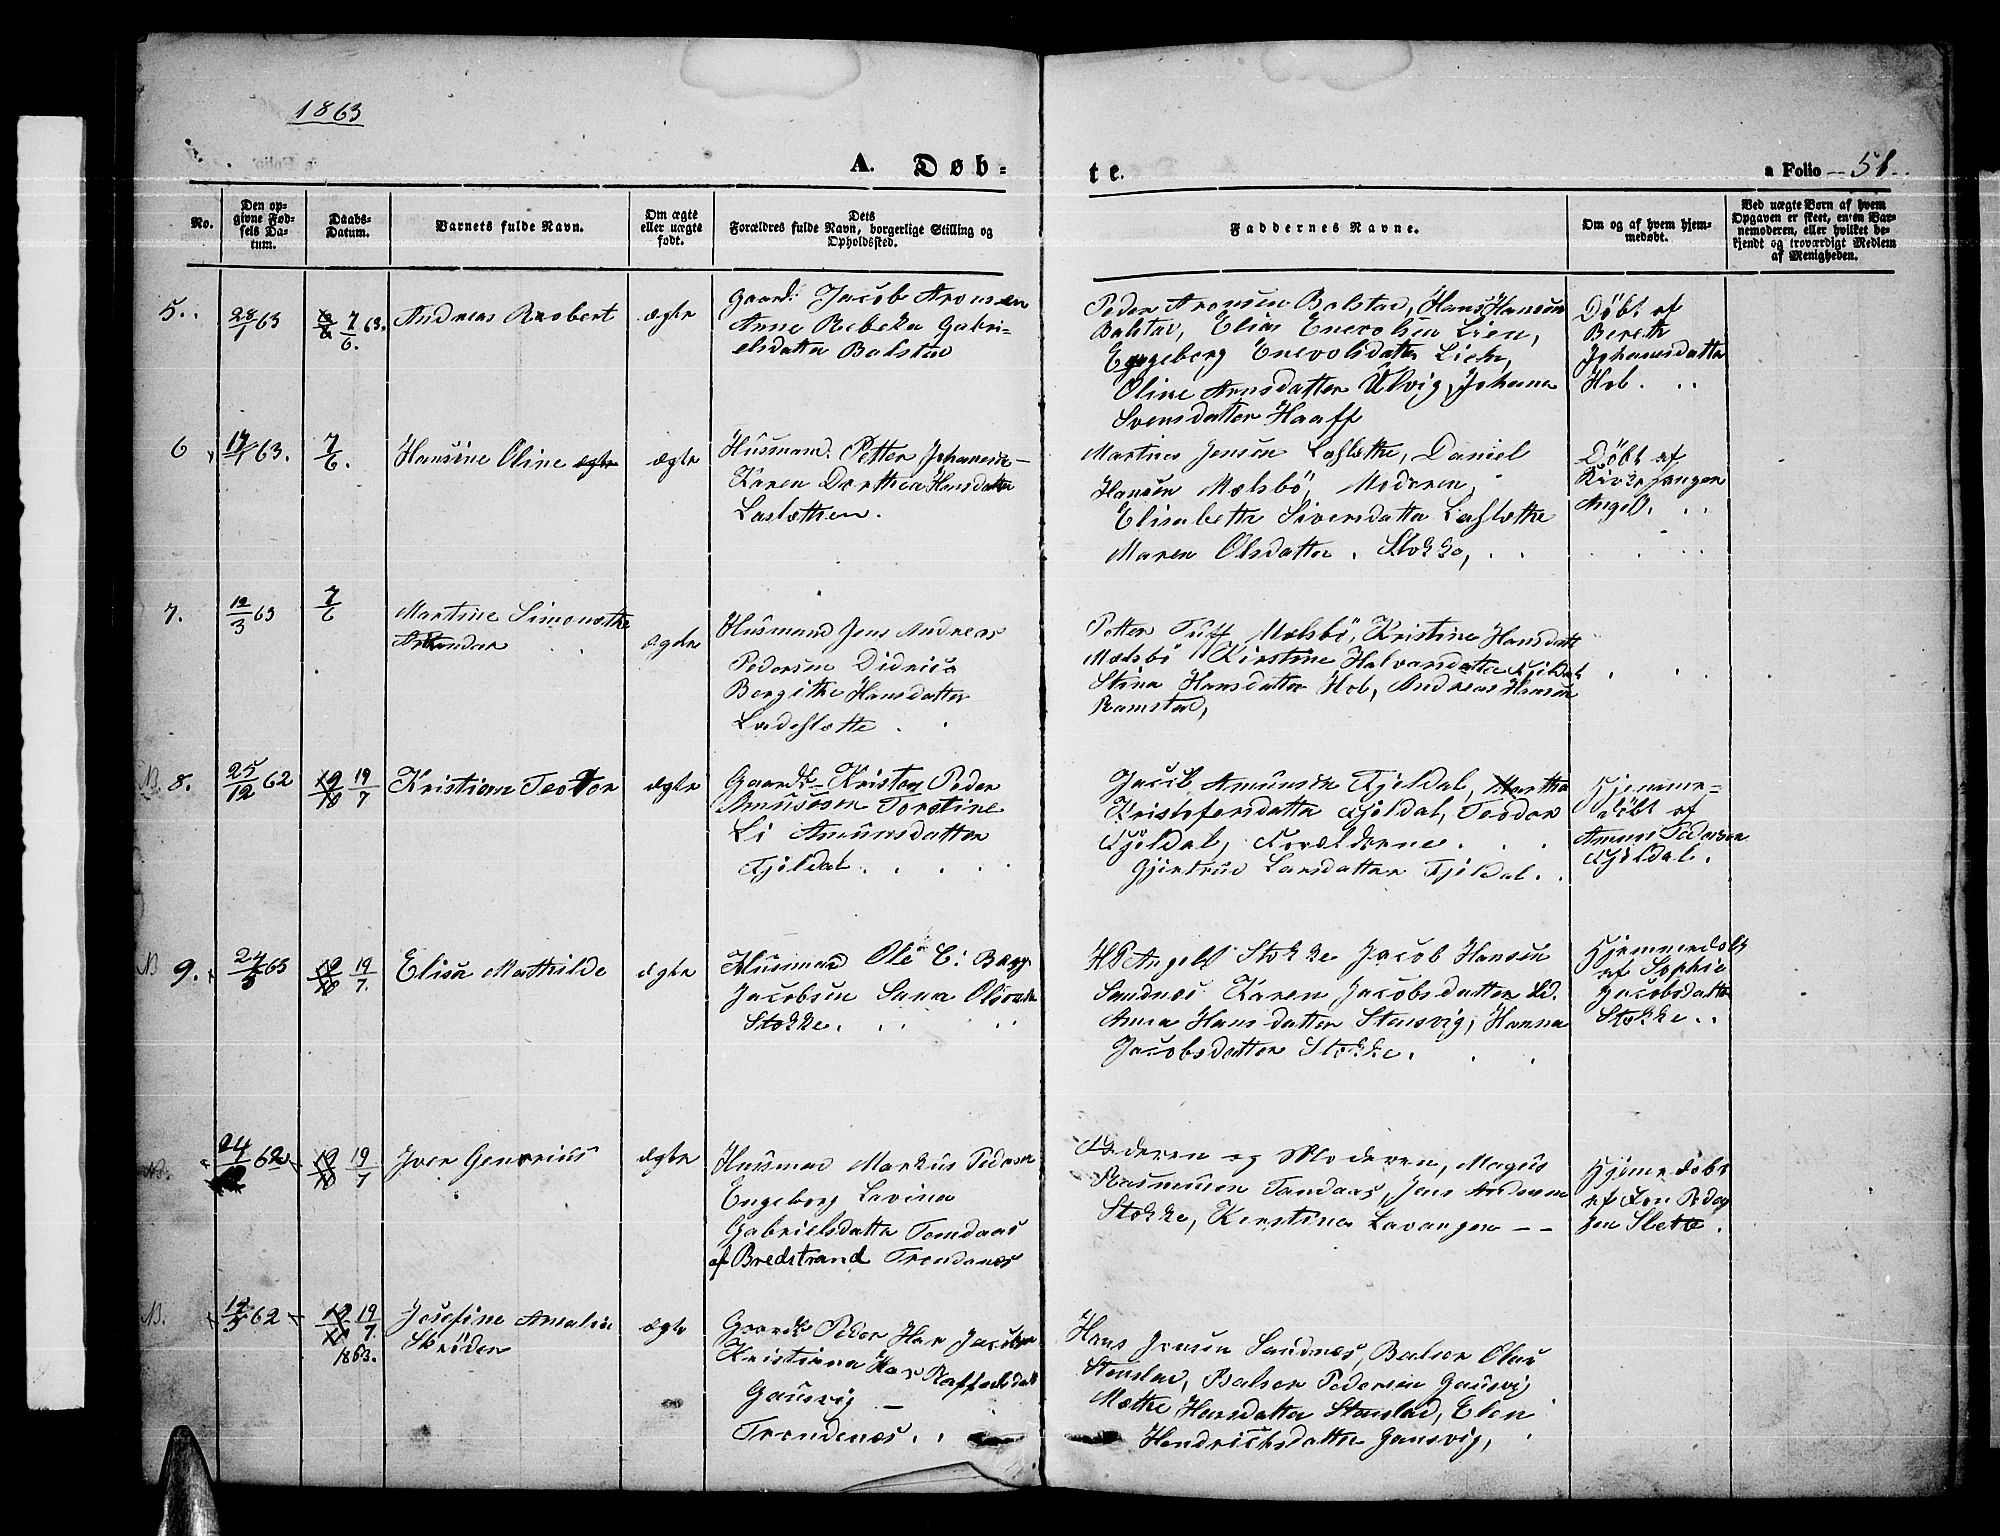 1863
A. Døb-
te.
a Folio 51.
No.
Den op-
givne Fød-
sels Da-
tum.
Daabs-
Datum.
Barnets fulde Navn.
Om ægte
eller uægte
født.
Dets
Forældres fulde Navn, borgerlige Stilling og
Opholdssted.
Faddernes Navne.
Om og af hvem hjem-
medøbt.
Ved uægte Børn af hvem
Opgaven er skeet, enten Bar-
nemoderen, eller hvilket be-
kjendt og troværdigt Medlem
af Menigheden.
5.
28/1 63
7/6 63.
Andreas Robert
ægte
Gaard: Jacob Aronsen
Anne Rebeka Gabri-
elsdatter Balstad
Peder Aronsen Balstad, Hans Hansen
Balstad, Elias Enevolsen Lien,
Engeborg Enevolsdatter Lien,
Oline Arnsdatter Ulvig, Johana
Svensdatter Haaff
Døbt af
Bereth
Johansdatter
Hob.
6
17/1 63.
7/6.
Hansine Oline ægte
ægte
Husmand. Petter Johansen
Karen Dorthea Hansdatter
Laslætten.
Martines Jensen Laslætte, Daniel
Hansen Mælsbö, Moderen,
Elisabeth Siversdatter Laslætte
Maren Olsdatter. Stokke,
Døbt af
Angell.
7.
12/3 63
7/6
Martine Simonethe
ægte
Husmand Jens Andreas
Pedersen Didrica
Bergithe Hansdatter
Ladeslætte
Petter Tuff Mælsbö, Kristine Hansdatt
Mælsbö Kirstine Halvorsdatter Fjeldal
Stina Hansdatter Hob, Andreas Hansen
Ramstad,
N 8.
25/12 62
19/7
Kristian Teodor
ægte
Gaardb Kristen Peder
Amundsen Torstine
Li Amundsdatter
Fjeldal.
Jacob Amunsen Fjeldal, Martha
Kristofersdatter Fjeldal, Teodor
Fjeldal, Forælderne.
Gjertrud Larsdatter Fjeldal.
Hjemme-
døbt af
Amun Pedersen
Fjeldal.
N 9.
63
19/7.
Elisa Mathilde
ægte
Husmand Ole C: Bergh
Jacobsen Sara
Stokke.
H P Angell Stokke Jacob Hansen
Sandnes Karen Jacobsdatter ibd.
Anna Hansdatter Stensvig, Hanna
Jacobsdatter Stokke.
Hjemmedøbt
af Sophie
Jacobsdatter
Stokke.
24/12 62
19/7
Iver
ægte
Husmand Markus Pedersen
Engeborg Lavina
Gabrielsdatter Tomdaas
af Bredstrand Trondenæs
Faderen og Moderen, Magnus
Rasmussen Tandaas, Jens Andersen
Stokke, Kerstina Lavangen
Hjemedøbt
af Jon Peder
sen Slette.
N.
62
19/7.
1863.
Josefine Amalia
Skrøden
ægte
Gaardb Peder Har Jacobsen
Kristiana Har Raffaelsdatt
Gausvig
Trondenæs.
Hans Jensen Sandnæs, Balser Olsen
Stenslad, Balser Pedersen Gausvig
Mætthe Hansdatter Stenslad, Elen
Hendrichsdatter Gausvig,